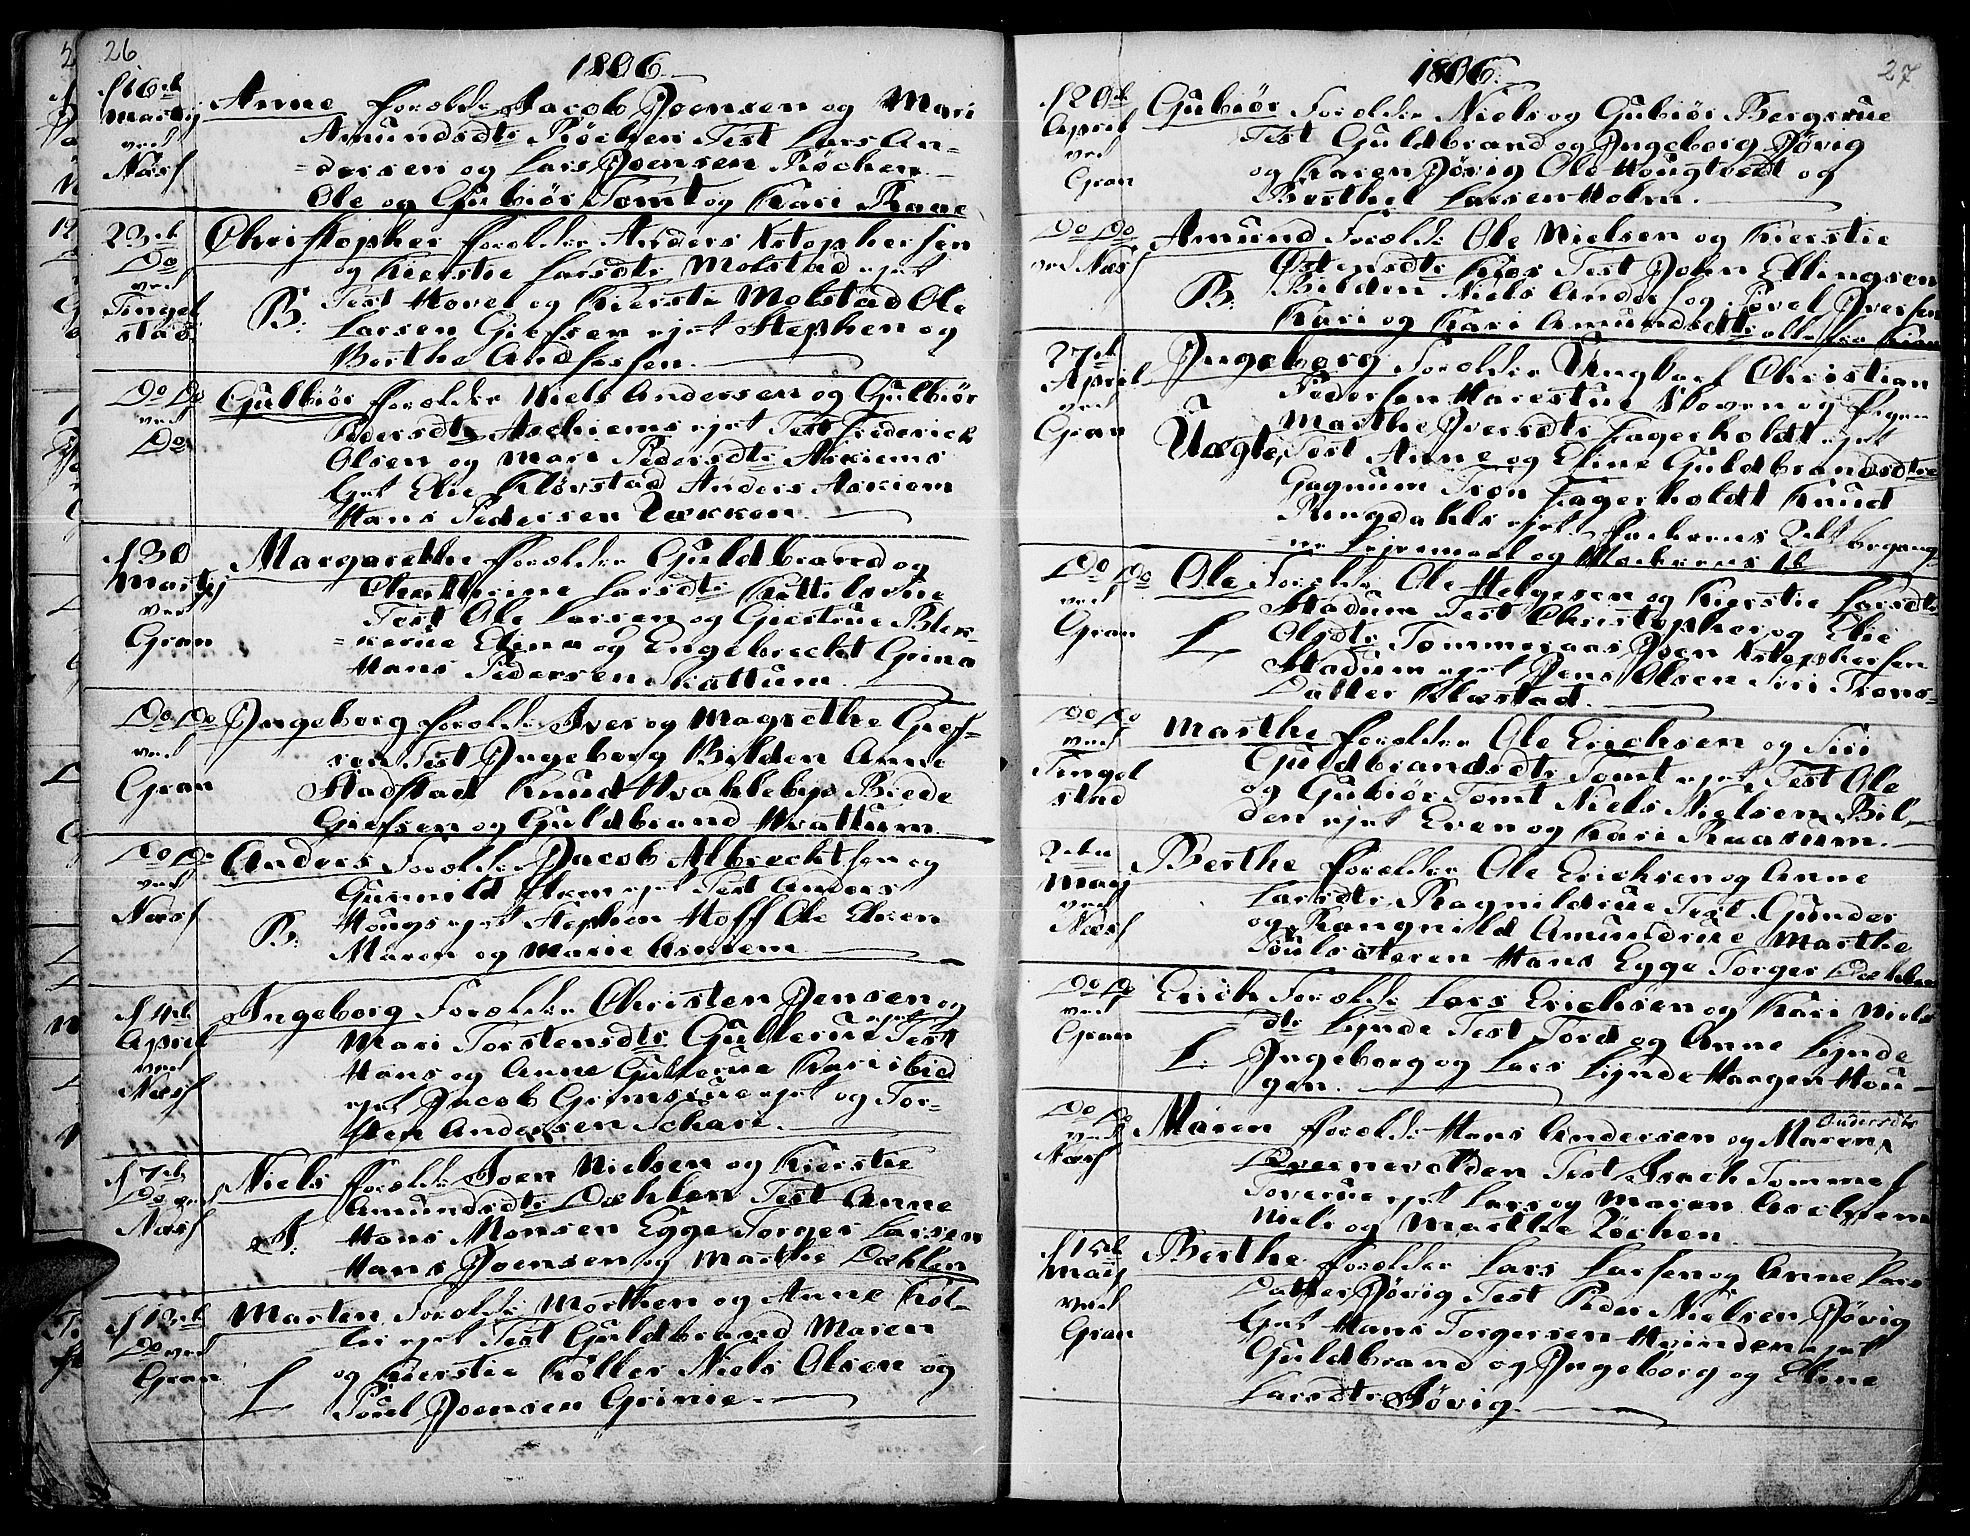 26
1806
d 16de
Martij
ved
Næss
Anne forældr Jacob Joensen og Mari
Amundsdtr Røchen Test Lars An=
=dersen og Lars Joensen Røchen
Ole og Gubiør Tomt og Kari Raae
23de
Do
ved
Tingel
stad
Christopher forældr Anders Kstophersen
og Kierstie Larsdtr Molstad ejet
B: Test Hover og Kierstie Molstad Ole
Larsen Giefsen ejet Stephen og
Berthe Andfossen
Do Do
ved
Do
Gulbiør forældr Niels Anderssen og Gulbiør
Pedersdtr Aschiems ejet Test Frederich
Olsen og Mari Pedersdtr Askiems
Ejet Elie Kløvstad Anders Askiem
Hans Pedersen Rækken
d 30
Martij
ved
Gran
Margarethe forældr Guldbrand og
Chathrine Larsdtr
Test Ole Larsen og Giertrue Blek=
=kerue Elina og Engebrecht Grina
Hans Pedersen Skattum
Do Do
ved
Gran
Ingeborg forældr Iver og Magrethe Gief=
sen Test Ingeborg Bilden Anne
Stadstad Knud Hvahlebye Brede
Giefsen og Guldbrand Hvattum
Do Do
ved
Næss
Anders Forældr Jacob Albrechtsen og
Gunnild ejet Test Anders
B: Hougs ejet Stephen Hoff Ole
Maren og Marie Askiem
d 4de
April
ved
Næss
Ingeborg Forældr Christen Jensen og
Mari Torstensdtr Gullerue ejet Test
Hans og Anne Gullerue Kari
ejet Jacob Grimsrue ejet og Tor=
sten Andersen Schari
d 7de
Do ved
Næss
Niels forældr Joen Nielsen og Kierstie
Amundsdtr Dæhlen Test Anne
Hans Monsen Egge Torger Larsen
Hans Joensen og Marthe Dæhlen
d 13de
Do ved
Gran
Morten Forældr Morthen og Anne Køl=
ler ejet Test Guldbrand Maren
L og Kierstie Køller Niels Olsen og
Povel Joensen Grinie
27
1806
d 20de
April
ved
Gran
Gubiør Forældr Niels og Gubiør Bergsrue
Test Guldbrand og Ingeborg Jøvig
og Karen Jøvig Ole Hougtvedt og
Berthel Larsen Holm
Do Do
ved Næss
Amund Forældr Ole Nielsen og Kierstie
Østensdtr Test John Ellingsen
B: Bilden Niels Anders og Povel Iversen
Kari og Kari Amundsdtr alle fra
27de
April
ved
Gran
Ingeborg forældr Ungkarl Christian
Pedersen Harestue Skoven og Pigen
Marthe Iversdtr Fagerholdt ejet
Uægte, Test Anne og Eline Guldbrandsdtr
Gagnum Tron Fagerholdt Knud
Ringdahls ejet Faderens 2de begang=
=ne Lejermaal og Moderens 1te
Do Do
ved
Gran
Ole Forældr Ole Helgesen og Kierstie Larsdtr
Stadum Test Christopher og Elie
L Olsdtr Tommeraas Joen Kstophersen
Stadum ejet Jens Olsen Siri Trons=
Datter Klæstad
Do Do
ved
Tingel
stad
Marthe forældr Ole Erichsen og Siri
Guldbrandsdtr Tomt ejet Test Ole
og Gubiør Tomt Niels Nielsen Bil=
den ejet Even og Kari Raasum
2den
Maij
ved
Næss
Berthe forældr Ole Erichsen og Anne
Larsdtr Ragnildrue Test Gunder
og Rangnild Amundrue Marthe
Hans Egge Torger Dæhlen
Do Do
ved
Gran
Erich Forældr Lars Erichsen og Kari Niels
dtr Lynde Test Tord og Anne Lynde
L: Ingeborg og Lars Lynde Haagen Hou=
gen
Do Do
ved
Næss
Maren forældr Hans Andersen og Maren Andersdtr
Qvernevolden Test Isach Tomme
Toverue ejet Lars og Maren
Niels og Marthe Røchen
d 15de
Maij
ved
Gran
Berthe forældr Lars Larsen og Anne Lars
Datter Jøvig Test Peder Nielsen Jøvig
Ejet Hans Torgersen Hvinden ejet
Guldbrand og Ingeborg og Eline
Larsdtr Jøvig